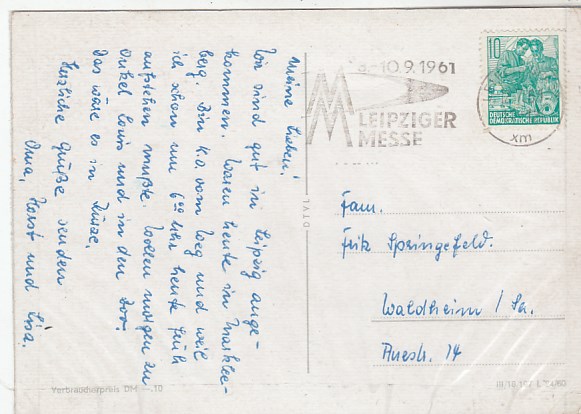 Meine Lieben!
Wir sind gut in Leipzig ange-
kommen. Waren heute in Markklee-
berg. Bin k.o. vom Weg und weil
ich schon um 6⁰⁰ Uhr heute früh
aufstehen mußte. Wollen morgen zu
Onkel Louis und in den Zoo.
Das wäre es in Kürze.
Herzliche Grüße senden
Oma, Horst und Lisa.
-10.9.1961
MM LEIPZIGER
MESSE
10
DEUTSCHE
DEMOKRATISCHE REPUBLIK
xm
Fam.
Fritz Springefeld.
Waldheim / Sa.
14
Verbraucherpreis DM —.10